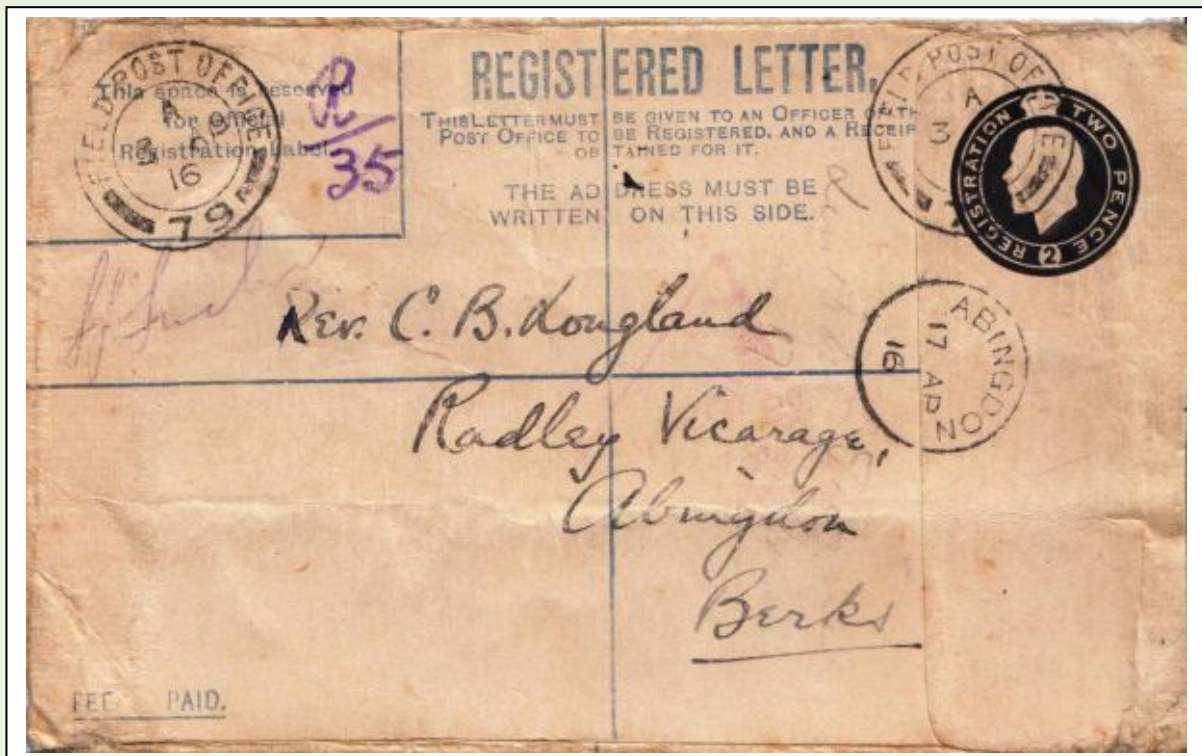 FIELD POST OFFICE
A
3 AP
16
79
This space is reserved
for official
Registration Label.
R/35
REGISTERED LETTER.
THIS LETTER MUST BE GIVEN TO AN OFFICER OF TH
POST OFFICE TO BE REGISTERED. AND A RECEIP
OBTAINED FOR IT.
THE ADDRESS MUST BE
WRITTEN ON THIS SIDE.
FIELD POST OF
A
3
REGISTRATION TWO PENCE
2
Rev. C. B. Longland
Radley Vicarage,
Abingdon
Berks
ABINGDON
17 AP
16
FEE PAID.